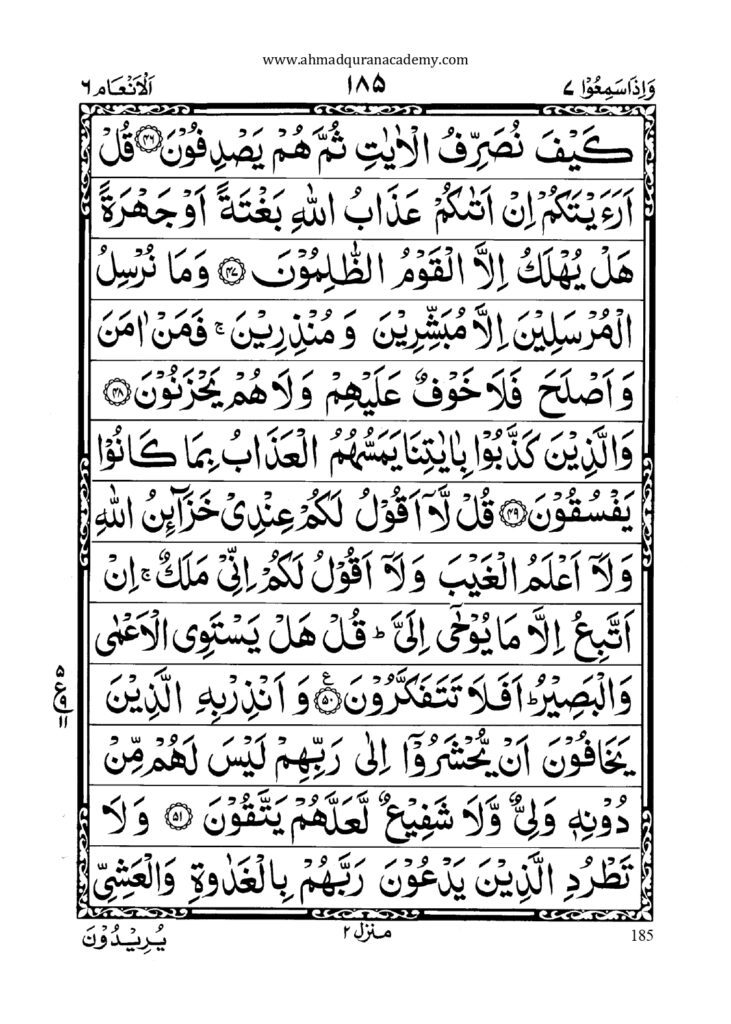 www.ahmadquranacademy.com
وَاِذَاسَمِعُوۡا ۷ ۱۸۵ اَلۡاَنۡعَام ۶
كَيۡفَ نُصَرِّفُ الۡاٰيٰتِ ثُمَّ هُمۡ يَصۡدِفُوۡنَ ۴۶ قُلۡ
اَرَءَيۡتَكُمۡ اِنۡ اَتٰٮكُمۡ عَذَابُ اللّٰهِ بَغۡتَةً اَوۡ جَهۡرَةً
هَلۡ يُهۡلَكُ اِلَّا الۡقَوۡمُ الظّٰلِمُوۡنَ ۴۷ وَمَا نُرۡسِلُ
الۡمُرۡسَلِيۡنَ اِلَّا مُبَشِّرِيۡنَ وَمُنۡذِرِيۡنَ ۚ فَمَنۡ اٰمَنَ
وَاَصۡلَحَ فَلَا خَوۡفٌ عَلَيۡهِمۡ وَلَا هُمۡ يَحۡزَنُوۡنَ ۴۸
وَالَّذِيۡنَ كَذَّبُوۡا بِاٰيٰتِنَا يَمَسُّهُمُ الۡعَذَابُ بِمَا كَانُوۡا
يَفۡسُقُوۡنَ ۴۹ قُلۡ لَّاۤ اَقُوۡلُ لَكُمۡ عِنۡدِىۡ خَزَآئِنُ اللّٰهِ
وَلَاۤ اَعۡلَمُ الۡغَيۡبَ وَلَاۤ اَقُوۡلُ لَكُمۡ اِنِّىۡ مَلَكٌ ۚ اِنۡ
اَتَّبِعُ اِلَّا مَا يُوۡحٰٓى اِلَىَّ ؕ قُلۡ هَلۡ يَسۡتَوِى الۡاَعۡمٰى
وَالۡبَصِيۡرُ ؕ اَفَلَا تَتَفَكَّرُوۡنَ ۵۰ ع وَاَنۡذِرۡ بِهِ الَّذِيۡنَ
۵ ع ۹ ۱۱
يَخَافُوۡنَ اَنۡ يُّحۡشَرُوۡۤا اِلٰى رَبِّهِمۡ لَيۡسَ لَهُمۡ مِّنۡ
دُوۡنِهٖ وَلِىٌّ وَّلَا شَفِيۡعٌ لَّعَلَّهُمۡ يَتَّقُوۡنَ ۵۱ وَلَا
تَطۡرُدِ الَّذِيۡنَ يَدۡعُوۡنَ رَبَّهُمۡ بِالۡغَدٰوةِ وَالۡعَشِىِّ
185 منزل ۲ يُرِيۡدُوۡنَ